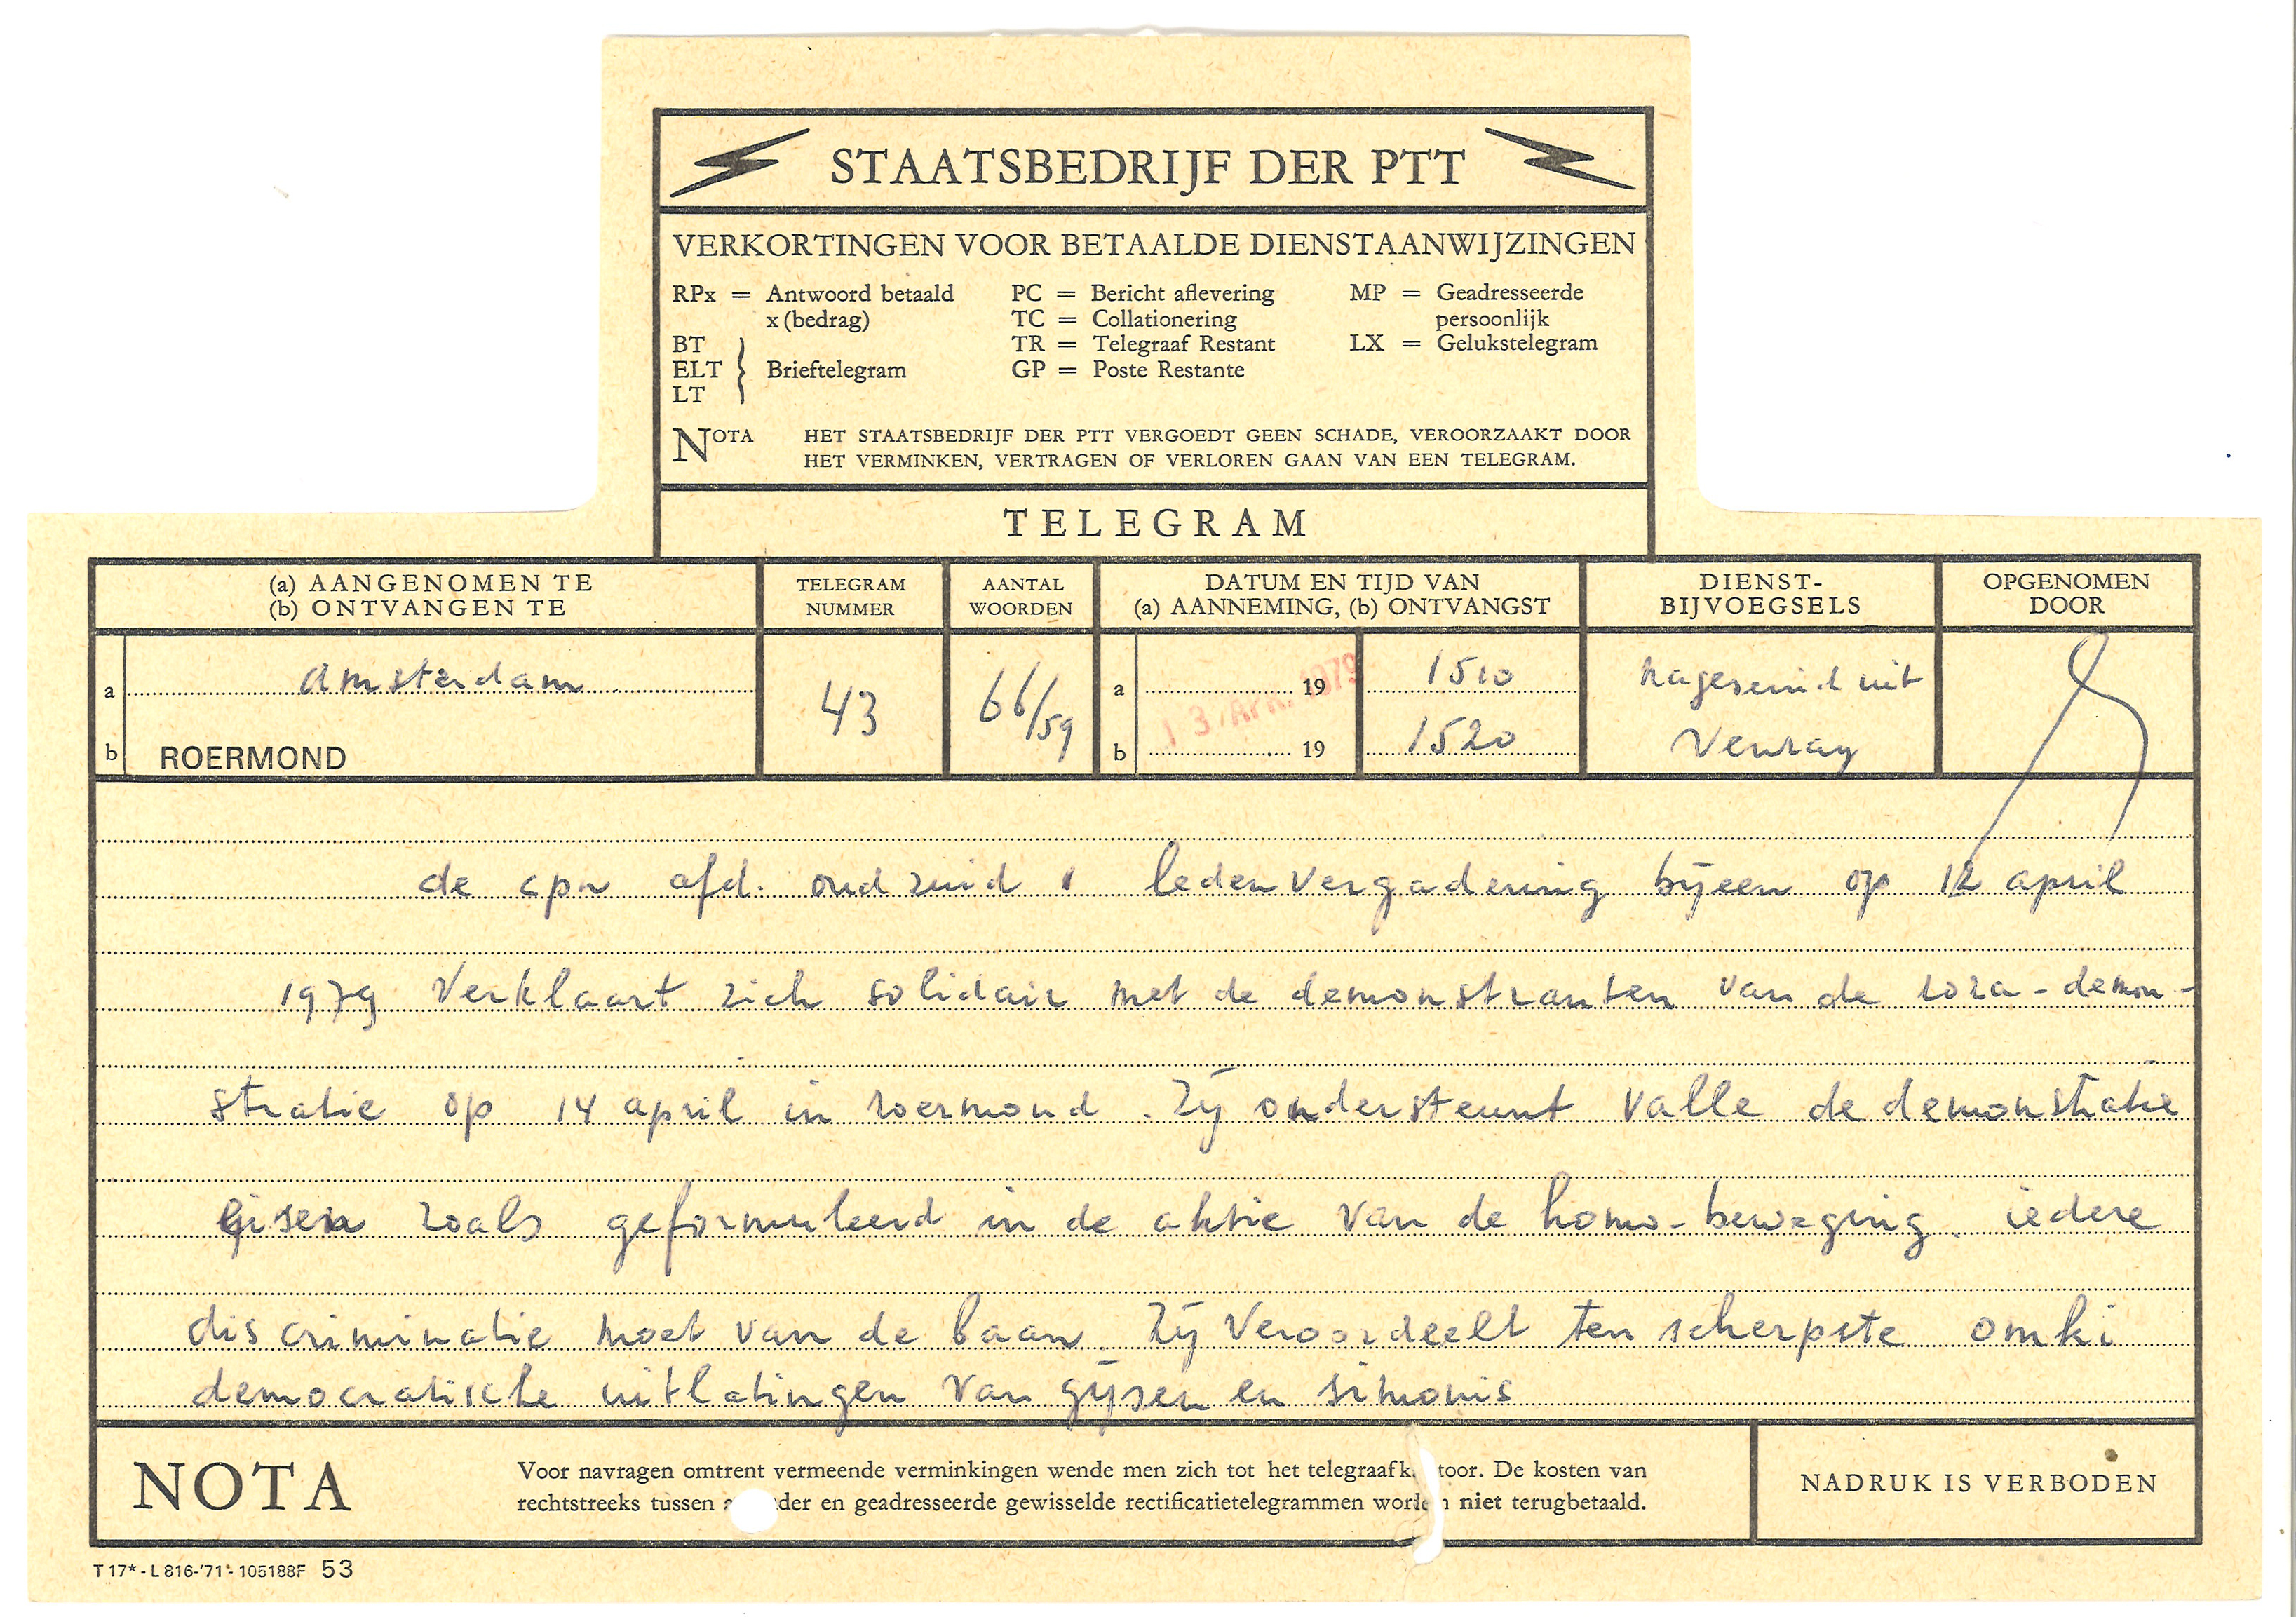 STAATSBEDRIJF DER PTT
VERKORTINGEN VOOR BETAALDE DIENSTAANWIJZINGEN
RPx = Antwoord betaald PC = Bericht aflevering MP = Geadresseerde
x (bedrag) TC = Collationering persoonlijk
BT TR = Telegraaf Restant LX = Gelukstelegram
ELT } Brieftelegram GP = Poste Restante
LT
NOTA HET STAATSBEDRIJF DER PTT VERGOEDT GEEN SCHADE, VEROORZAAKT DOOR
HET VERMINKEN, VERTRAGEN OF VERLOREN GAAN VAN EEN TELEGRAM.
TELEGRAM
(a) AANGENOMEN TE TELEGRAM AANTAL DATUM EN TIJD VAN DIENST- OPGENOMEN
(b) ONTVANGEN TE NUMMER WOORDEN (a) AANNEMING, (b) ONTVANGST BIJVOEGSELS DOOR
a Amsterdam 43 66/59 a 19 1510 nageseind uit
13 APR. 1979
b ROERMOND b 19 1520 Venray
de cpn afd. oud zuid 1 ledenvergadering bijeen op 12 april
1979 verklaart zich solidair met de demonstranten van de roza-demon-
stratie op 14 april in roermond. Zij ondersteunt valle de demonstratie
eisen zoals geformuleerd in de aktie van de homo-beweging. iedere
discriminatie moet van de baan. Zij veroordeelt ten scherpste omki
democratische uitlatingen van gijsen en simonis
NOTA Voor navragen omtrent vermeende verminkingen wende men zich tot het telegraafk toor. De kosten van
rechtstreeks tussen a der en geadresseerde gewisselde rectificatietelegrammen worden niet terugbetaald.
NADRUK IS VERBODEN
T 17* - L 816-'71' - 105188F 53